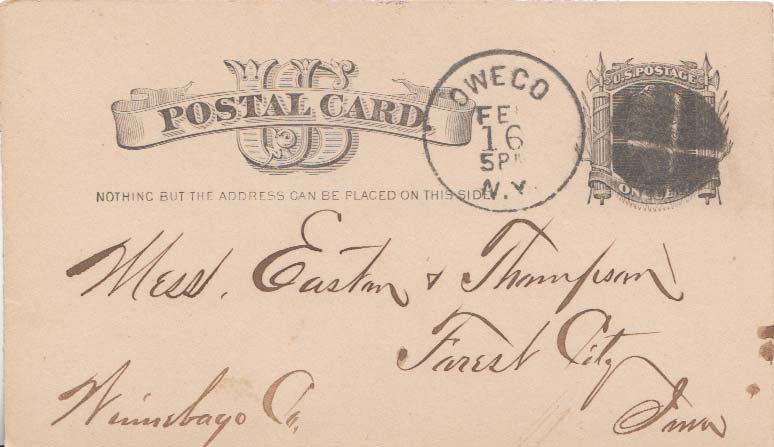 US
POSTAL CARD.
NOTHING BUT THE ADDRESS CAN BE PLACED ON THIS SIDE
OWEGO
FE
16
5P
N.Y.
U.S. POSTAGE
ON
Mess. Easton & Thompson
Forest City
Winnebago Co.
Iowa